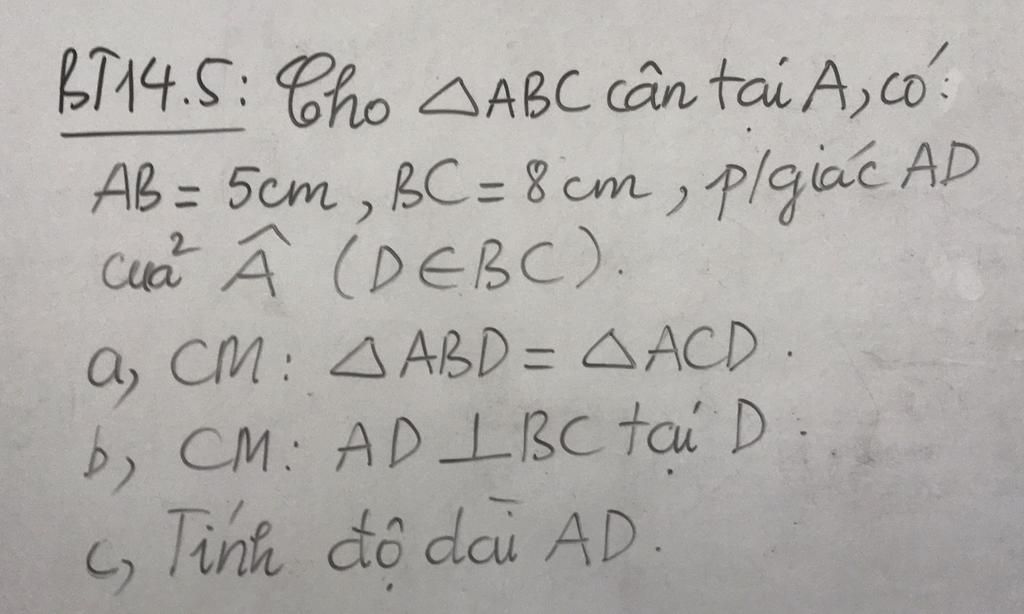 BT14.5: Cho △ABC cân tại A, có:
AB = 5cm, BC = 8cm, p/giác AD
của Â (D∈BC).
a, CM: △ABD = △ACD.
b, CM: AD ⊥ BC tại D.
c, Tính độ dài AD.